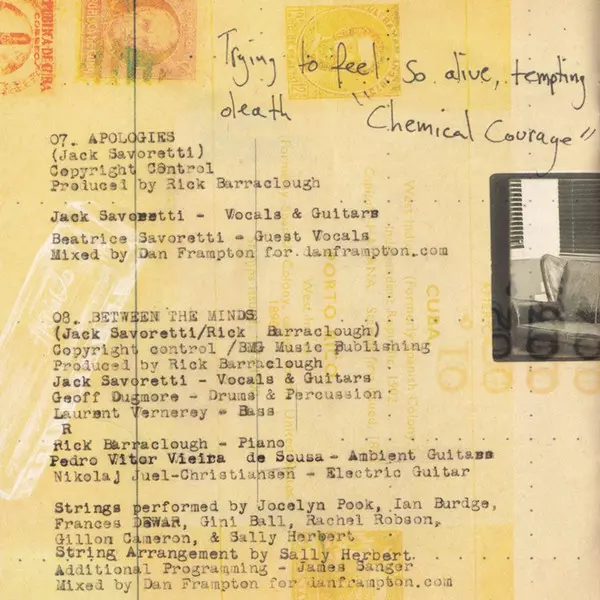 Trying to feel so alive, tempting
death "Chemical Courage"
07. APOLOGIES
(Jack Savoretti)
Copyright C0ntrol
Produced by Rick Barraclough
Jack Savoretti - Vocals & Guitars
Beatrice Savoretti - Guest Vocals
Mixed by Dan Frampton for danframpton.com
08. BETWEEN THE MINDS
(Jack Savoretti/Rick Barraclough)
Copyright control /BMG Music Publishing
Produced by Rick Barraclough
Jack Savoretti - Vocals & Guitars
Geoff Dugmore - Drums & Percussion
Laurent Vernerey - Bass
R
Rick Barraclough - Piano
Pedro Vitor Vieira de Sousa - Ambient Guitars
Nikolaj Juel-Christiansen - Electric Guitar
Strings performed by Jocelyn Pook, Ian Burdge,
Frances DEWAR, Gini Ball, Rachel Robson,
Gillon Cameron, & Sally Herbert
String Arrangement by Sally Herbert.
Additional Programming - James Sanger
Mixed by Dan Frampton for danframpton.com
CUBA